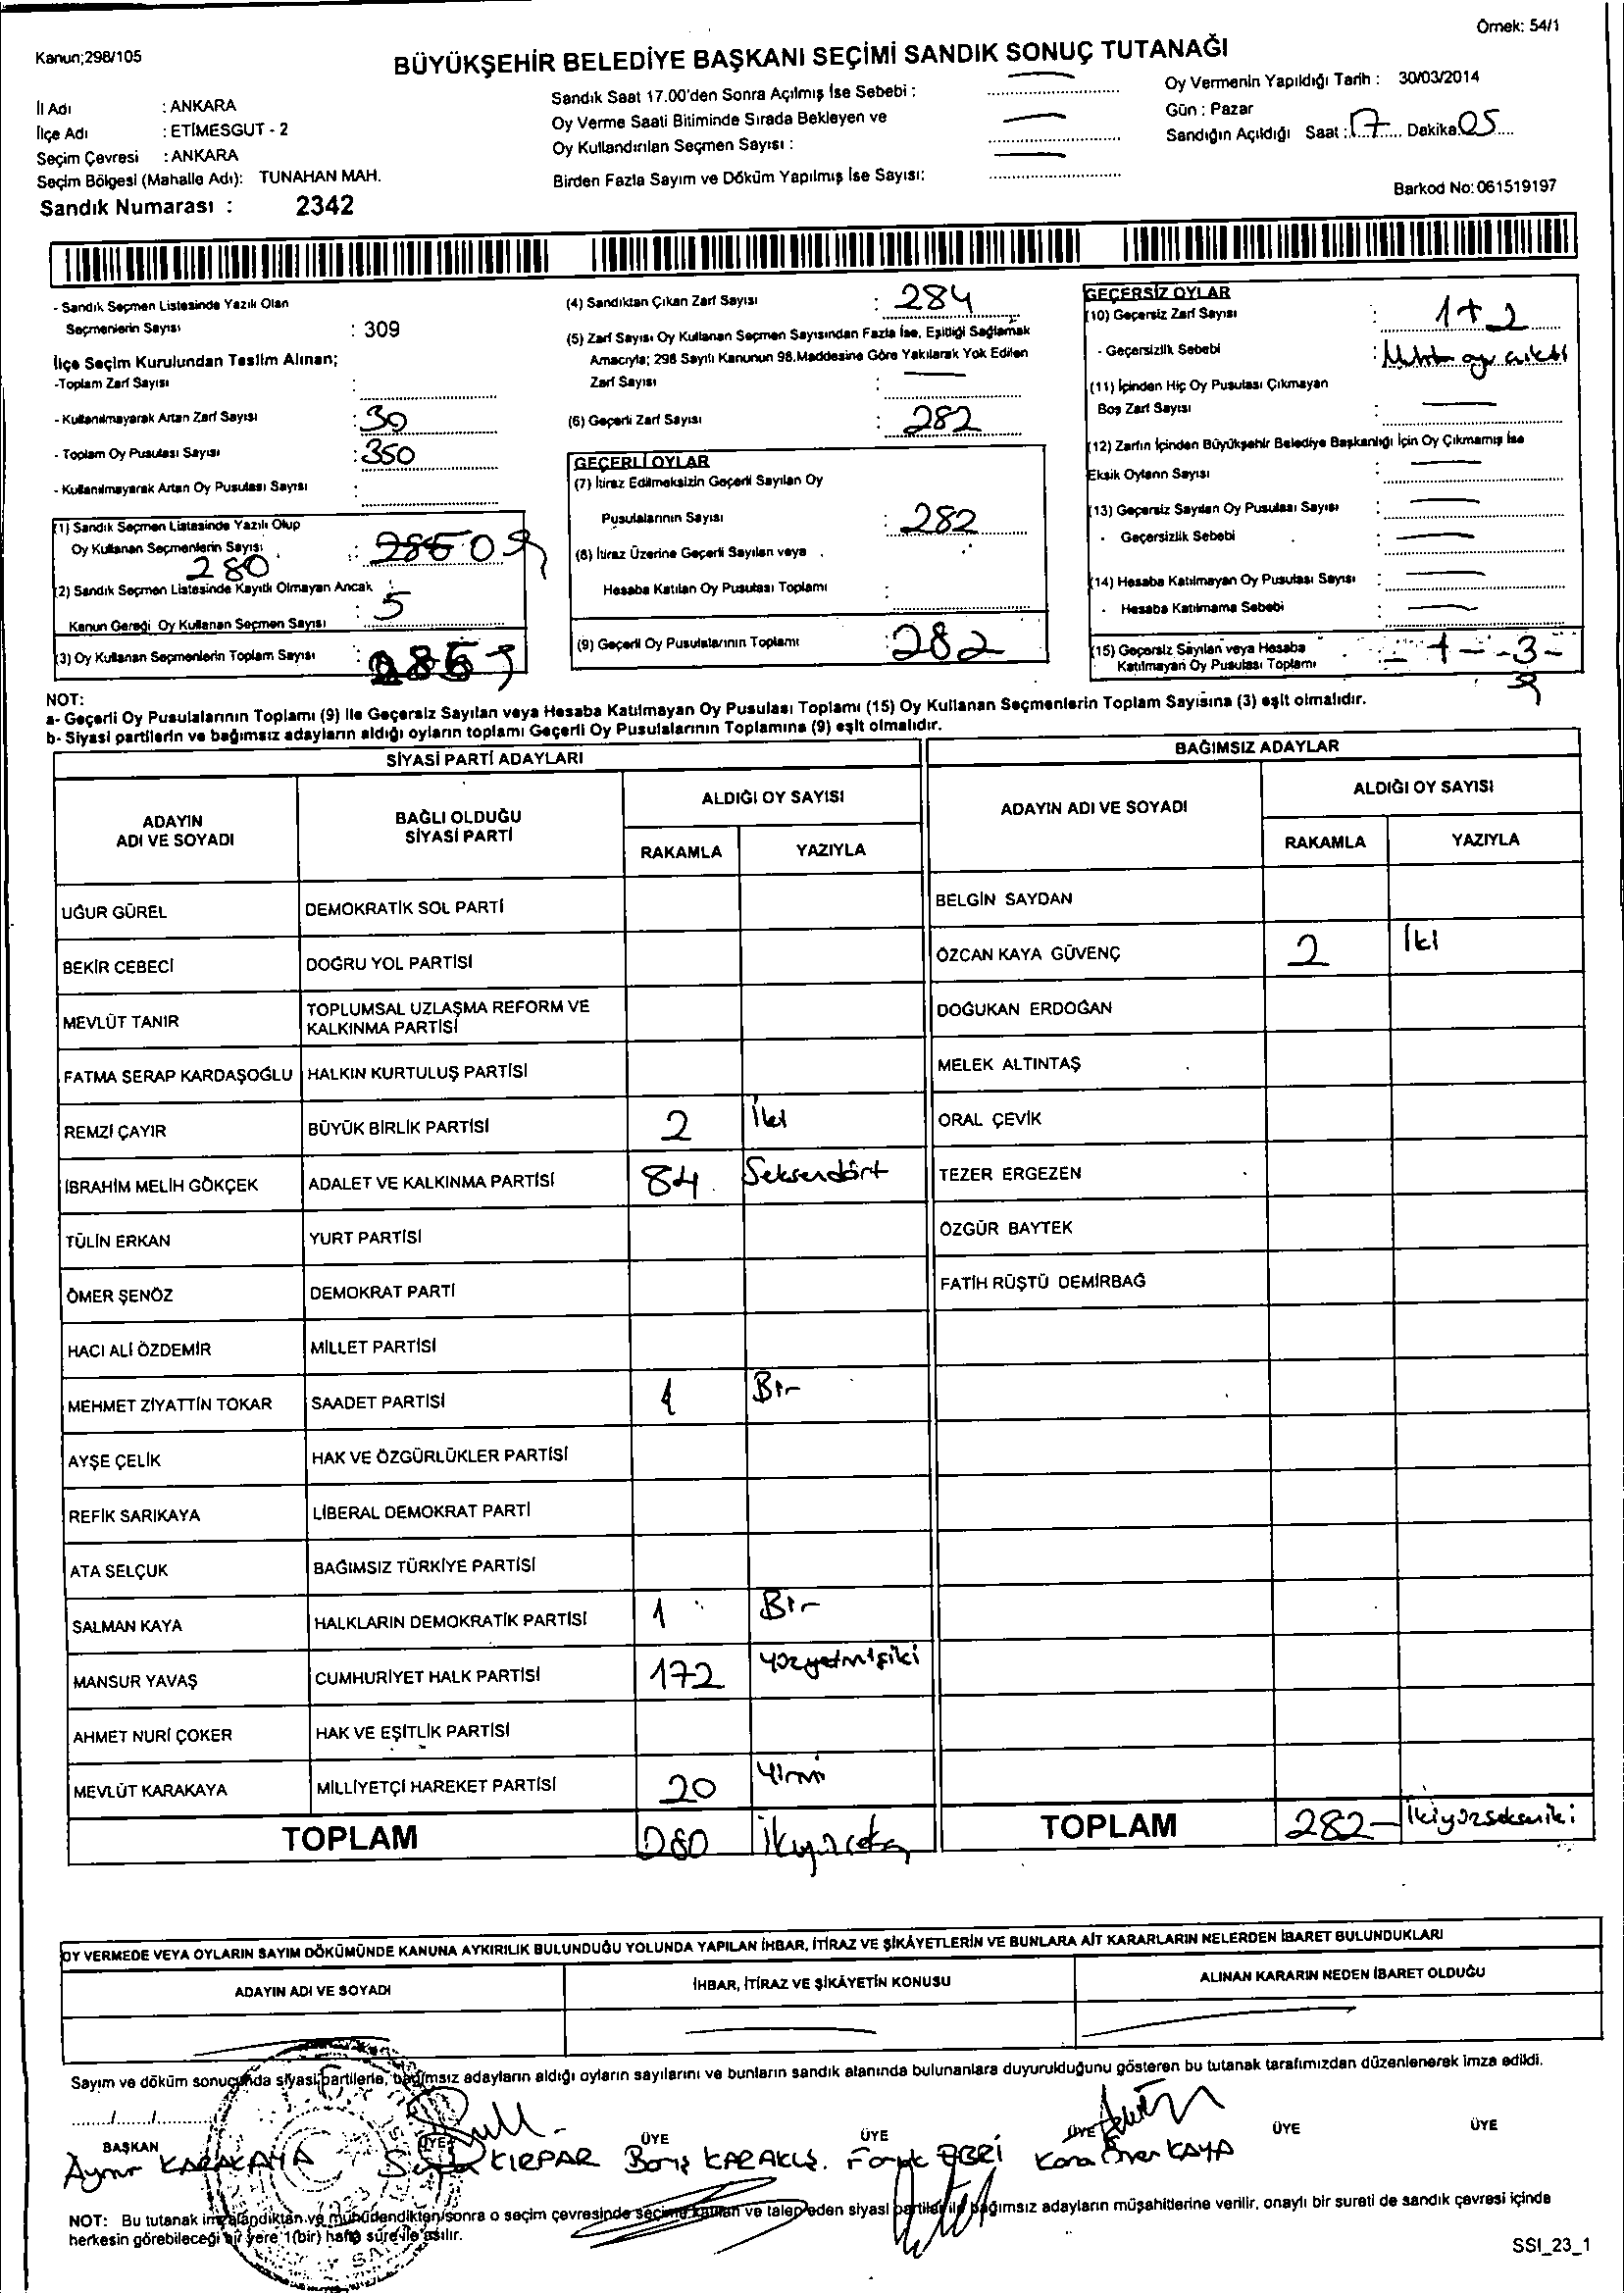 Örnek: 54/1
Kanun;298/105
BÜYÜKŞEHİR BELEDİYE BAŞKANI SEÇİMİ SANDIK SONUÇ TUTANAĞI
İl Adı : ANKARA
İlçe Adı : ETİMESGUT - 2
Seçim Çevresi : ANKARA
Seçim Bölgesi (Mahalle Adı): TUNAHAN MAH.
Sandık Numarası : 2342
Sandık Saat 17.00'den Sonra Açılmış İse Sebebi :
Oy Verme Saati Bitiminde Sırada Bekleyen ve
Oy Kullandırılan Seçmen Sayısı :
Birden Fazla Sayım ve Döküm Yapılmış İse Sayısı:
Oy Vermenin Yapıldığı Tarih : 30/03/2014
Gün : Pazar
Sandığın Açıldığı Saat : 17 Dakika 05
Barkod No: 061519197
- Sandık Seçmen Listesinde Yazılı Olan
Seçmenlerin Sayısı : 309
İlçe Seçim Kurulundan Teslim Alınan;
-Toplam Zarf Sayısı :
- Kullanılmayarak Artan Zarf Sayısı : 30
- Toplam Oy Pusulası Sayısı : 350
- Kullanılmayarak Artan Oy Pusulası Sayısı :
(1) Sandık Seçmen Listesinde Yazılı Olup
Oy Kullanan Seçmenlerin Sayısı :
280
(2) Sandık Seçmen Listesinde Kayıtlı Olmayan Ancak
Kanun Gereği Oy Kullanan Seçmen Sayısı : 5
(3) Oy Kullanan Seçmenlerin Toplam Sayısı :
(4) Sandıktan Çıkan Zarf Sayısı : 284
(5) Zarf Sayısı Oy Kullanan Seçmen Sayısından Fazla İse, Eşitliği Sağlamak
Amacıyla; 298 Sayılı Kanunun 98.Maddesine Göre Yakılarak Yok Edilen
Zarf Sayısı :
(6) Geçerli Zarf Sayısı : 282
GEÇERLİ OYLAR
(7) İtiraz Edilmeksizin Geçerli Sayılan Oy
Pusulalarının Sayısı : 282
(8) İtiraz Üzerine Geçerli Sayılan veya
Hesaba Katılan Oy Pusulası Toplamı :
(9) Geçerli Oy Pusulalarının Toplamı : 282
GEÇERSİZ OYLAR
(10) Geçersiz Zarf Sayısı : 1+2
- Geçersizlik Sebebi :
(11) İçinden Hiç Oy Pusulası Çıkmayan
Boş Zarf Sayısı :
(12) Zarfın İçinden Büyükşehir Belediye Başkanlığı İçin Oy Çıkmamış İse
Eksik Oyların Sayısı :
(13) Geçersiz Sayılan Oy Pusulası Sayısı :
- Geçersizlik Sebebi :
(14) Hesaba Katılmayan Oy Pusulası Sayısı :
- Hesaba Katılmama Sebebi :
(15) Geçersiz Sayılan veya Hesaba
Katılmayan Oy Pusulası Toplamı : - 1 - - 3 -
NOT:
a- Geçerli Oy Pusulalarının Toplamı (9) ile Geçersiz Sayılan veya Hesaba Katılmayan Oy Pusulası Toplamı (15) Oy Kullanan Seçmenlerin Toplam Sayısına (3) eşit olmalıdır.
b- Siyasi partilerin ve bağımsız adayların aldığı oyların toplamı Geçerli Oy Pusulalarının Toplamına (9) eşit olmalıdır.
SİYASİ PARTİ ADAYLARI
ADAYIN ADI VE SOYADI BAĞLI OLDUĞU SİYASİ PARTİ ALDIĞI OY SAYISI
RAKAMLA YAZIYLA
UĞUR GÜREL DEMOKRATİK SOL PARTİ
BEKİR CEBECİ DOĞRU YOL PARTİSİ
MEVLÜT TANIR TOPLUMSAL UZLAŞMA REFORM VE KALKINMA PARTİSİ
FATMA SERAP KARDAŞOĞLU HALKIN KURTULUŞ PARTİSİ
REMZİ ÇAYIR BÜYÜK BİRLİK PARTİSİ 2 İki
İBRAHİM MELİH GÖKÇEK ADALET VE KALKINMA PARTİSİ 84 Seksendört
TÜLİN ERKAN YURT PARTİSİ
ÖMER ŞENÖZ DEMOKRAT PARTİ
HACI ALİ ÖZDEMİR MİLLET PARTİSİ
MEHMET ZİYATTİN TOKAR SAADET PARTİSİ 1 Bir
AYŞE ÇELİK HAK VE ÖZGÜRLÜKLER PARTİSİ
REFİK SARIKAYA LİBERAL DEMOKRAT PARTİ
ATA SELÇUK BAĞIMSIZ TÜRKİYE PARTİSİ
SALMAN KAYA HALKLARIN DEMOKRATİK PARTİSİ 1 Bir
MANSUR YAVAŞ CUMHURİYET HALK PARTİSİ 172 Yüzyetmişiki
AHMET NURİ ÇOKER HAK VE EŞİTLİK PARTİSİ
MEVLÜT KARAKAYA MİLLİYETÇİ HAREKET PARTİSİ 20 Yirmi
TOPLAM 280
BAĞIMSIZ ADAYLAR
ADAYIN ADI VE SOYADI ALDIĞI OY SAYISI
RAKAMLA YAZIYLA
BELGİN SAYDAN
ÖZCAN KAYA GÜVENÇ 2 İki
DOĞUKAN ERDOĞAN
MELEK ALTINTAŞ
ORAL ÇEVİK
TEZER ERGEZEN
ÖZGÜR BAYTEK
FATİH RÜŞTÜ DEMİRBAĞ
TOPLAM 282 - İkiyüzsekseniki
OY VERMEDE VEYA OYLARIN SAYIM DÖKÜMÜNDE KANUNA AYKIRILIK BULUNDUĞU YOLUNDA YAPILAN İHBAR, İTİRAZ VE ŞİKÂYETLERİN VE BUNLARA AİT KARARLARIN NELERDEN İBARET BULUNDUKLARI
ADAYIN ADI VE SOYADI İHBAR, İTİRAZ VE ŞİKÂYETİN KONUSU ALINAN KARARIN NEDEN İBARET OLDUĞU
Sayım ve döküm sonucunda siyasi partilerle, bağımsız adayların aldığı oyların sayılarını ve bunların sandık alanında bulunanlara duyurulduğunu gösteren bu tutanak tarafımızdan düzenlenerek imza edildi.
....../....../............
BAŞKAN ÜYE ÜYE ÜYE ÜYE ÜYE ÜYE
KARAKAYA KIRPAR Barış KARAKUŞ. KAYA
NOT: Bu tutanak imzalandıktan ve mühürlendikten sonra o seçim çevresinde seçime katılan ve talep eden siyasi partiler ile bağımsız adayların müşahitlerine verilir, onaylı bir sureti de sandık çevresi içinde
herkesin görebileceği bir yere 1(bir) hafta süre ile asılır.
SSI_23_1